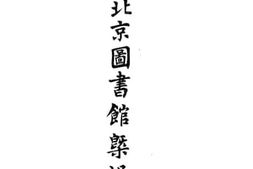 北京圖書館槧